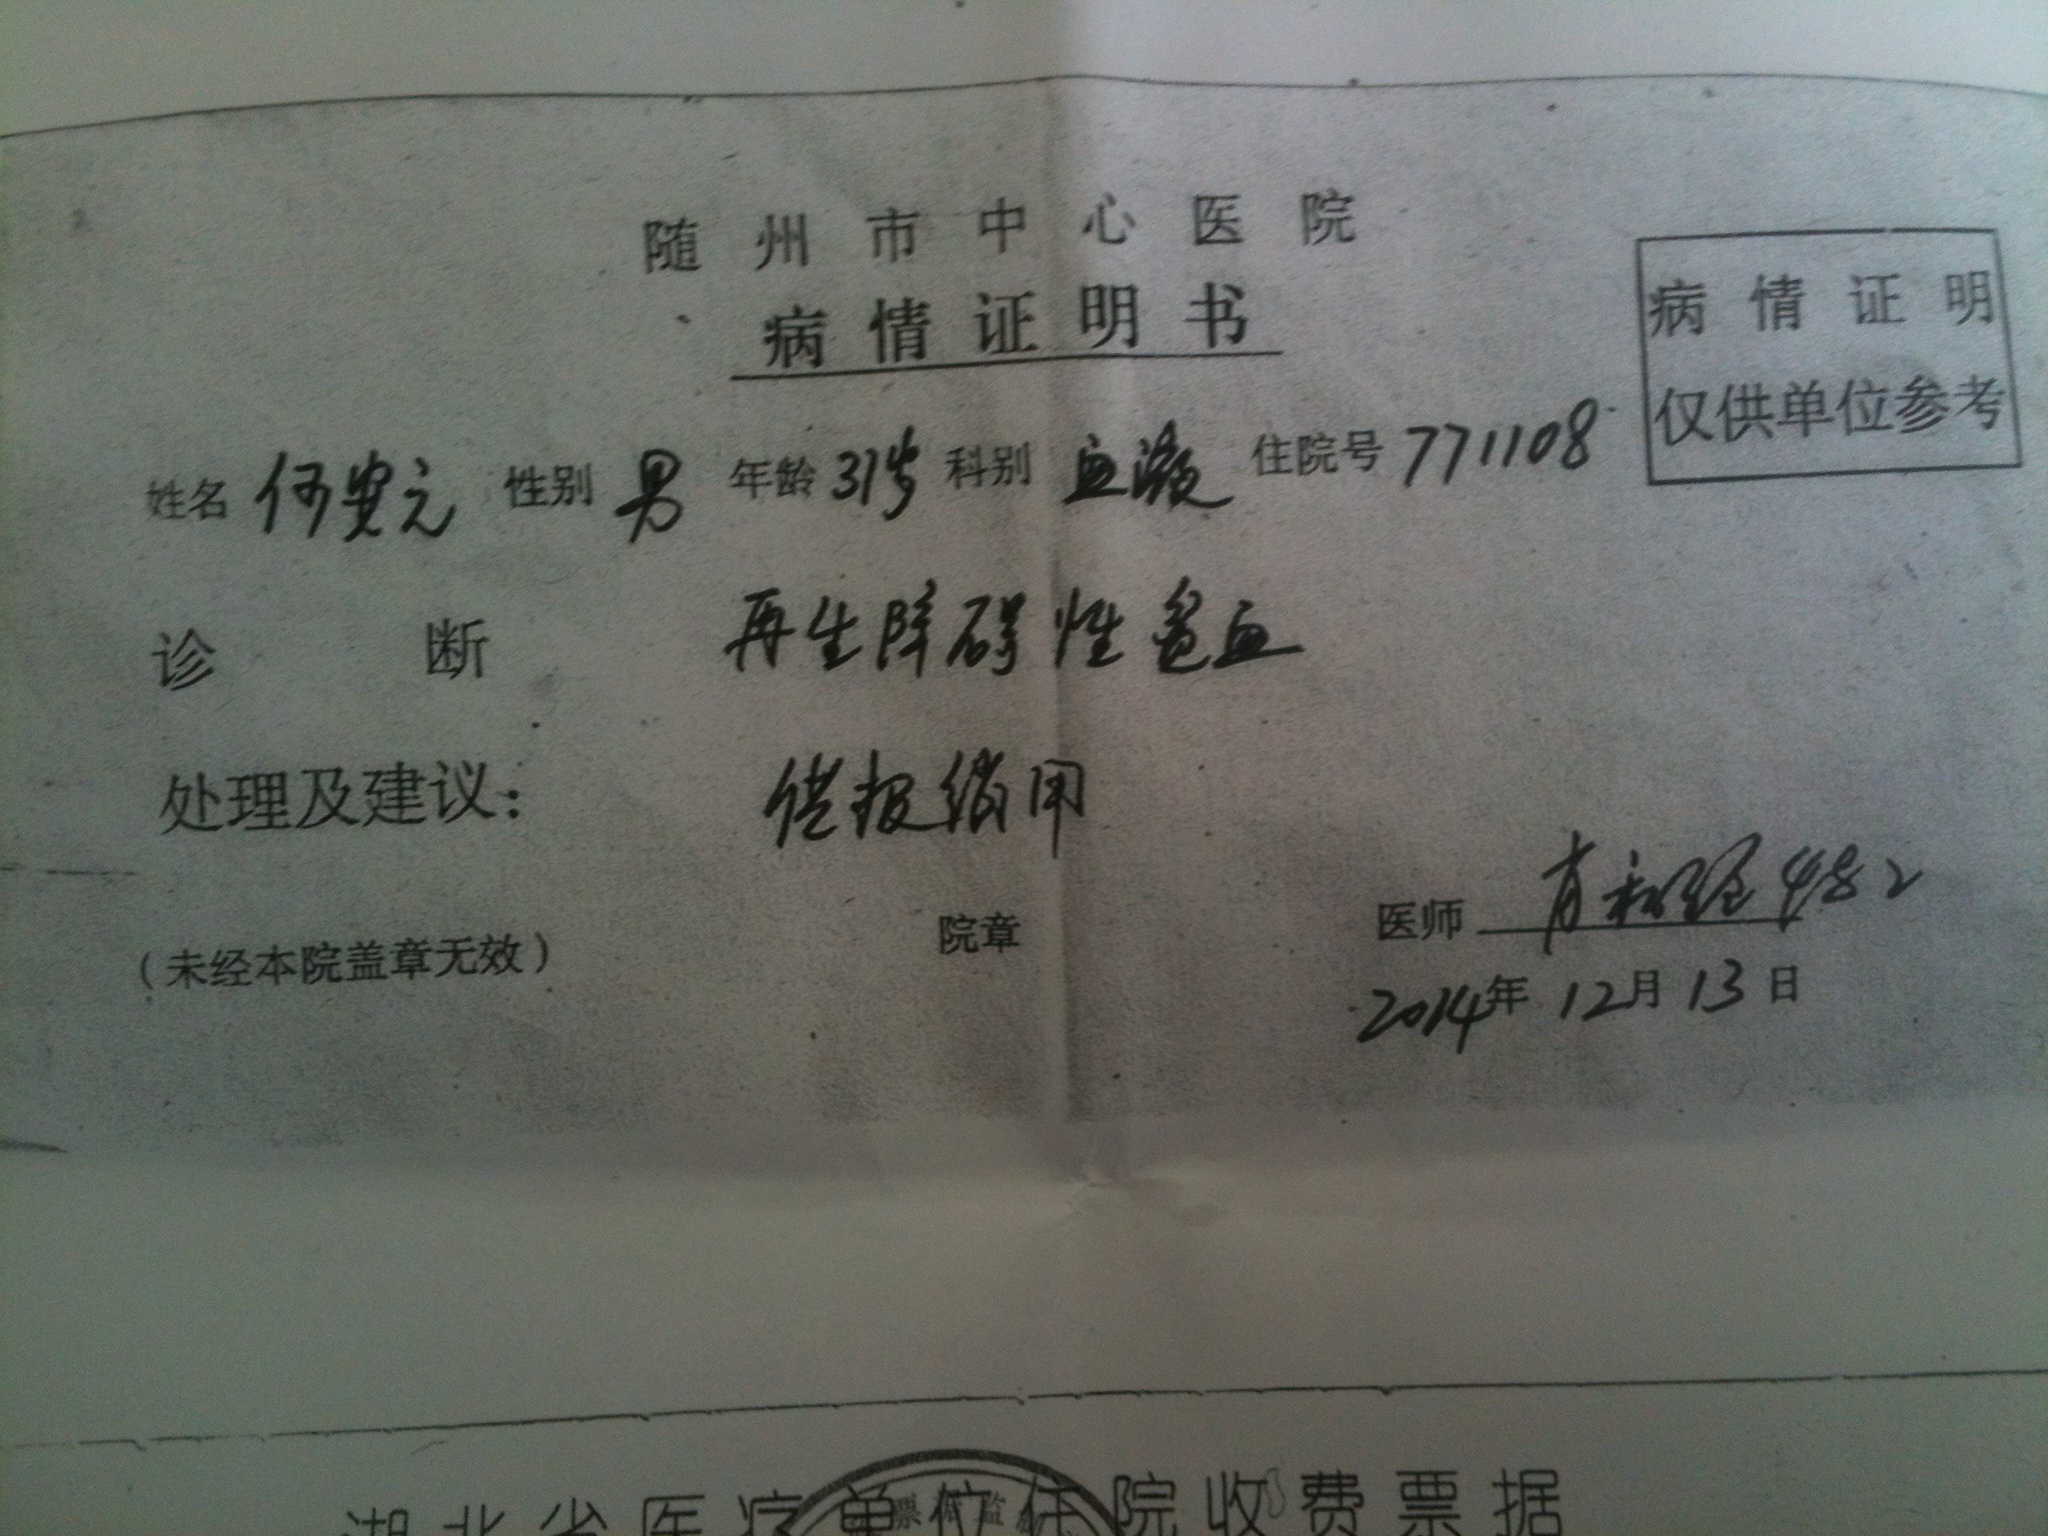 随州市中心医院
病情证明书
病情证明
仅供单位参考
姓名 何安元 性别 男 年龄 31岁 科别 血液 住院号 771108
诊断 再生障碍性贫血
处理及建议: 供报销用
(未经本院盖章无效) 院章 医师
2014年12月13日
湖北省医疗单位住院收费票据